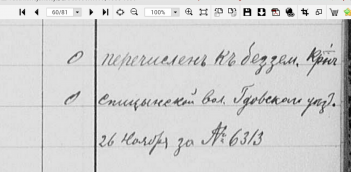 60/81 100%
0 перечисленъ къ беззем. Крᲂнъ
0 Спицынской вол. Гдовскаго уѣз.
26 Ноября за № 6313